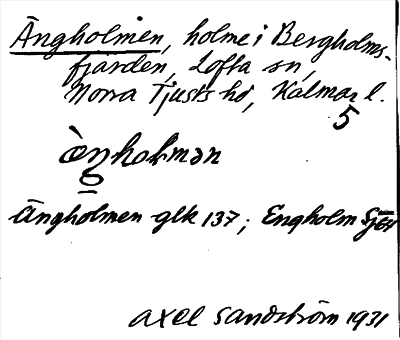 Ängholmen, holme i Bergholms-
fjärden, Lofta sn,
Norra Tjusts hd, Kalmar l.
5
Ängholmen glk 137; Engholm
Axel Sandström 1931